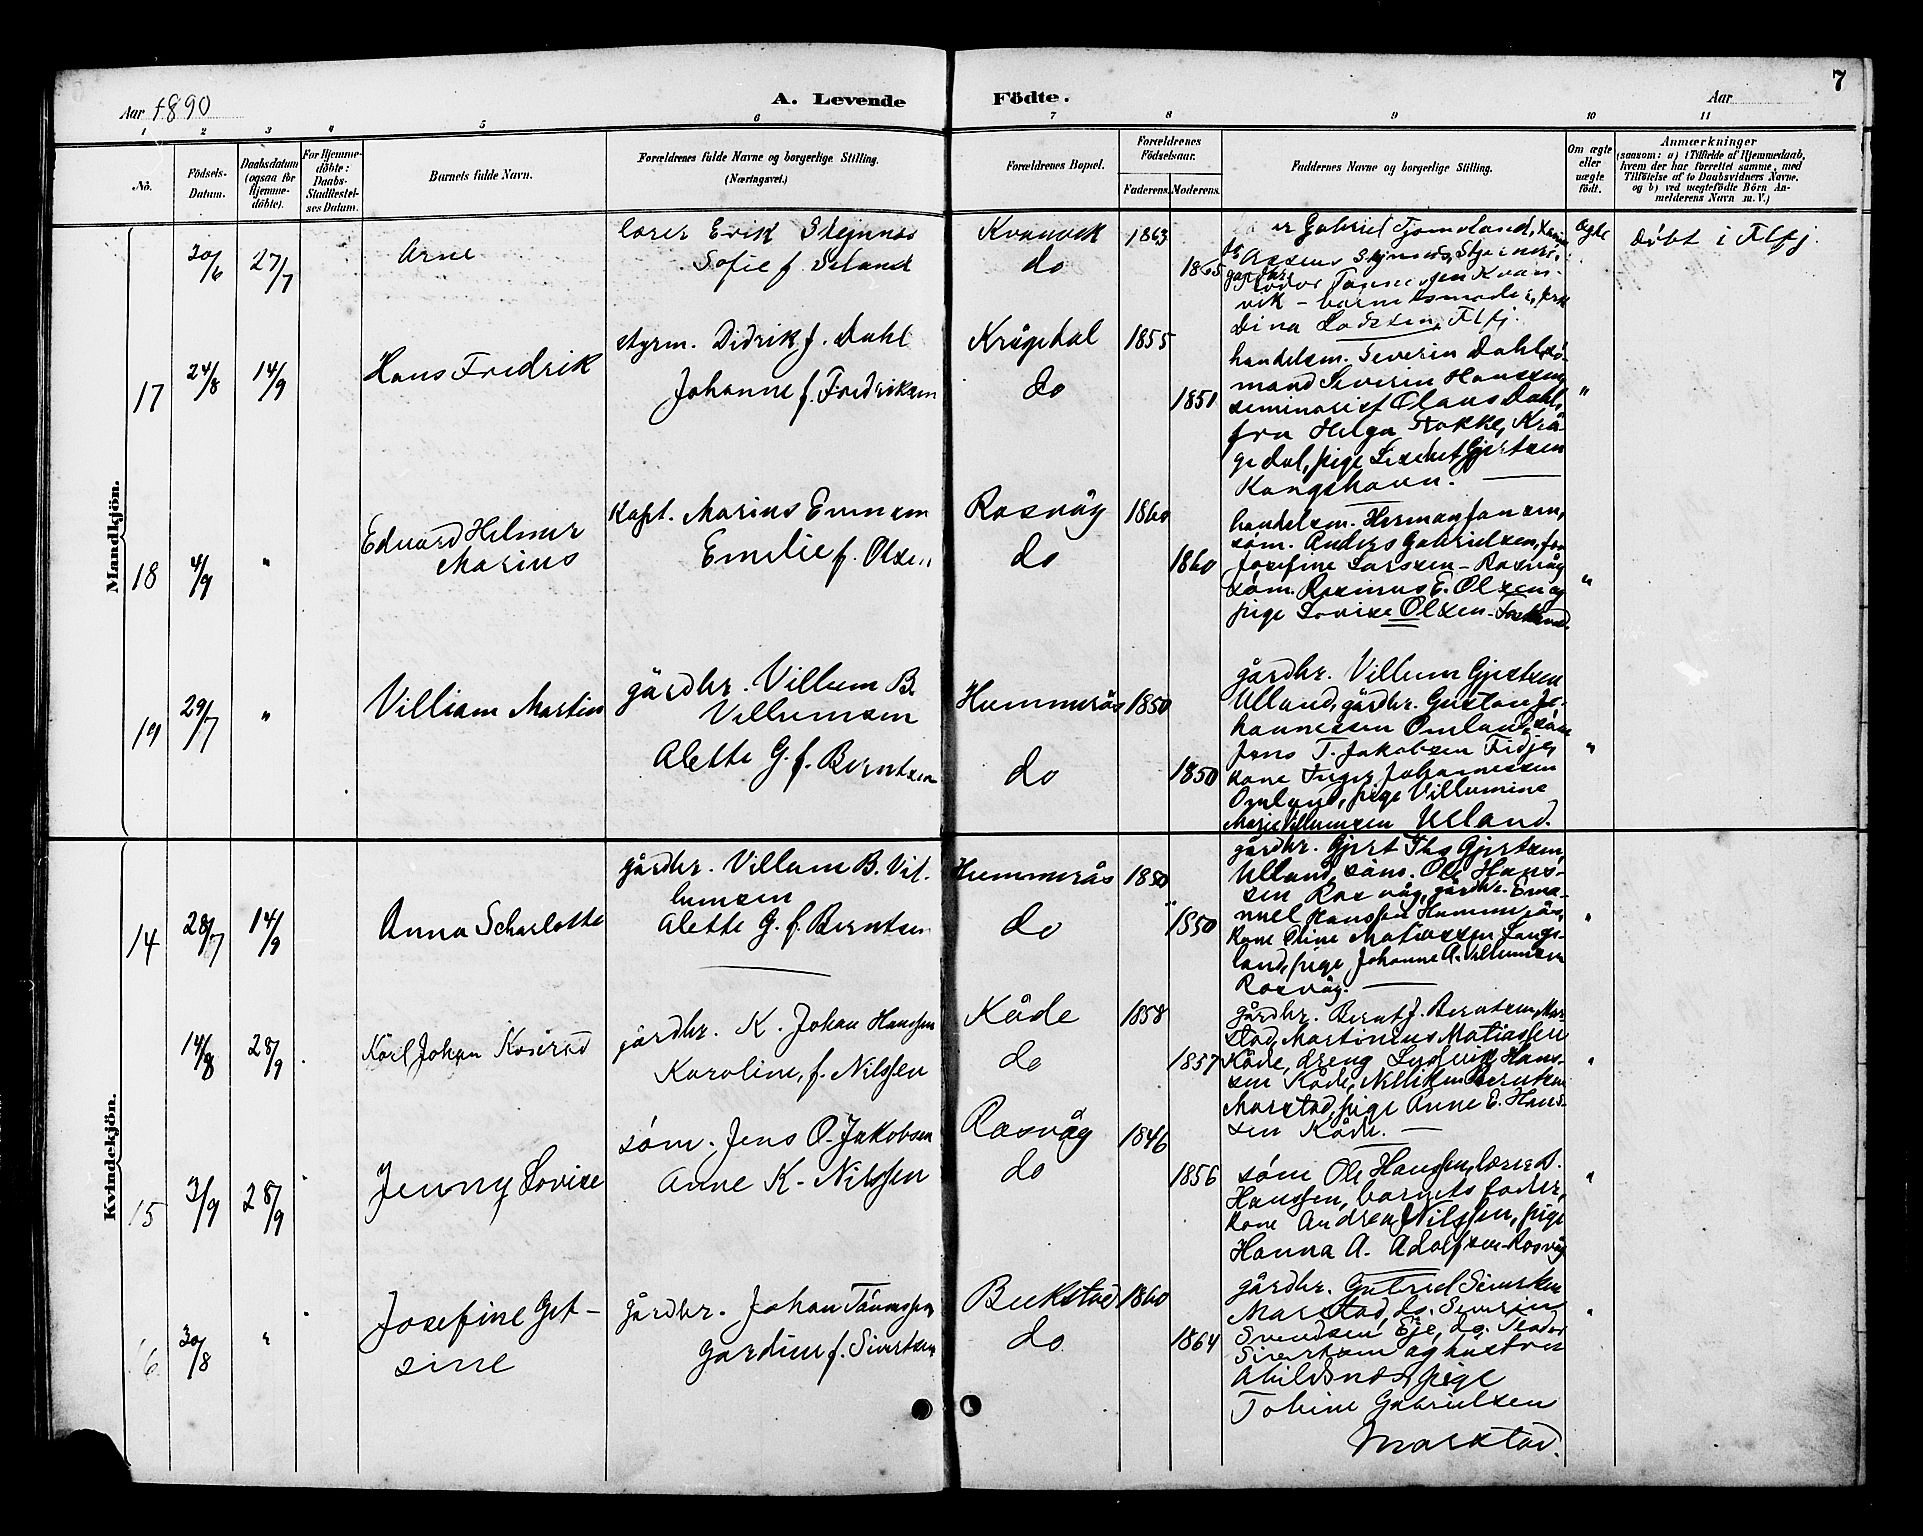 Aar 1890
A. Levende Födte.
Aar
7
1 2 3 4 5 6 7 8 9 10 11
No.
Födsels-Datum.
Daabsdatum (ogsaa for Hjemme-döbte).
For Hjemme-döbte: Daabs-Stadfæstel-ses Datum.
Barnets fulde Navn.
Forældrenes fulde Navne og borgerlige Stilling. (Næringsvei.)
Forældrenes Bopæl.
Forældrenes Födselsaar.
Faderens. Moderens.
Faddernes Navne og borgerlige Stilling.
Om ægte eller uægte födt.
Anmærkninger
(saasom: a) i Tilfælde af Hjemmedaab, hvem der har forrettet samme, med Tilföielse af to Daabsvidners Navne. og b) ved uægtefödte Börn Anmelderens Navn m. V.)
Mandkjön.
30/6 27/7
Arne
lærer Erik Stejnnes
Sofie f. Seland
Kvanvik
do
1863
1865
Gabriel Tjomsland,
Kvan-
vik – barnets moder,
Dina Lodsen, Flfj.
Ægte
Döbt i Flfj.
17 24/8 14/9
Hans Fredrik
styrm. Didrik J. Dahl
Johanne f. Fredriksen
Krågedal
do
1855
1851
handelsm. Severin Dahl, sö-
mand Severin Hanssen,
seminarist Olaus Dahl,
fru Helga Stokke, Krå-
gedal, pige Lisebet Gjertsen
Kongshavn.
"
18 4/9 "
Edvard Helmer
Marius
Kapt. Marius Evensen
Emelie f. Olsen
Rasvåg
do
1860
1860
handelsm. Herman Jansen,
söm. Anders Gabrielsen, fru
Josefine Larssen – Rasvåg
söm. Rasmus E. Olsen og
pige Lovise Olsen
"
19 29/7 "
Villiam Martin
gårdbr. Villum B.
Villumsen
Alette G. f. Berntsen
Hummerås
do
1850
1850
gårdbr. Villum Gjertsen
Ulland, gårdbr. Gustav Jo-
hannessen Omland, söm
Jens T. Jakobsen Fidje,
kone Inger Johannessen
Omland, pige Villumine
Marie Villumsen Ulland.
"
Kvindekjön.
14 28/7 14/9
Anna Scharlotte
gårdbr. Villum B. Vil-
lumsen
Alette G. f. Berntsen
Hummerås
do
1850
1850
gårdbr. Gjert Ths Gjertsen,
Ulland, söm. Ole Hans-
sen Rasvåg, gårdbr. Ema-
nuel Hanssen Hummerås,
kone Oline Matiassen Lange-
land, pige Johanne A. Villumsen
Rasvåg.
"
14/8 28/9
Karl Johan Konrad
gårdbr. K. Johan Hanssen
Karoline, f. Nilssen
Kåde
do
1858
1857
gårdbr. Bernt J. Berntsen Mar-
stad, Martinius Matiassen
Kåde, dreng Ludvig Hans-
sen Kåde, Berntsen
Marstad, pige Anne E. Hans-
sen Kåde.
"
15 3/9 28/9
Jenny Lovise
söm. Jens O. Jakobsen
Anne K. Nilssen
Rasvåg
do
1846
1856
söm Ole Hanssen, lærer B.
Hanssen, barnets fader,
kone Andrea Nilssen, pige
Hanna A. Adolfsen – Rasvåg
"
16 30/8 "
Josefine Get-
sine
gårdbr. Johan Tånnessen
Gardine f. Sivertsen
Bukstad
do
1860
1864
gårdbr. Gabriel Sivertsen
Marstad, do. Severin
Svendsen Eje, do. Teodor
Sivertsen og hustru
Abildsnes, pige
Tobine Gabrielsen
Marstad.
"